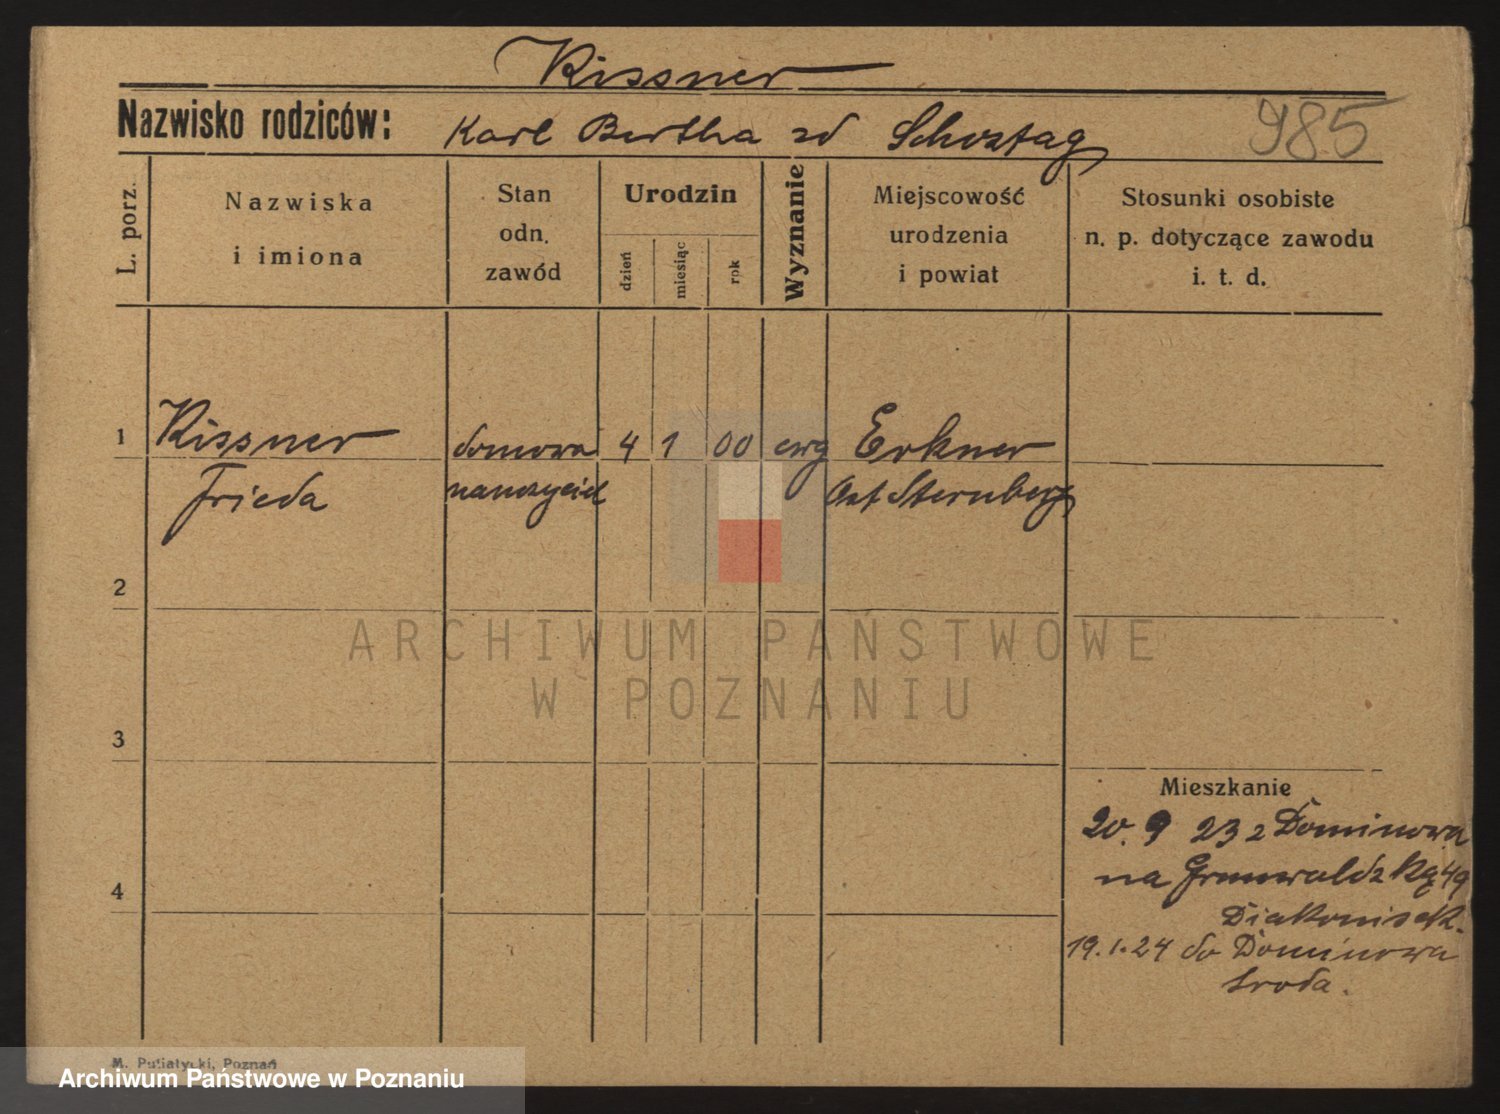 Kissner
Nazwisko rodziców: Karl Bertha zd Schostag 985
L. porz.
Nazwiska
i imiona
Stan
odn.
zawód
Urodzin
dzień
miesiąc
rok
Wyznanie
Miejscowość
urodzenia
i powiat
Stosunki osobiste
n. p. dotyczące zawodu
i. t. d.
1 Kissner domowa 4 1 00 ewg Erkner
Frieda nauczyciel Ost Sternberg
2
ARCHIWUM PAŃSTWOWE
W POZNANIU
3
Mieszkanie
20. 9 23 z Dominowa
na Grunwaldzką 49
4
Diakonisek.
19.1.24 do Dominowa
Sroda.
M. Putiatycki, Poznań
Archiwum Państwowe w Poznaniu